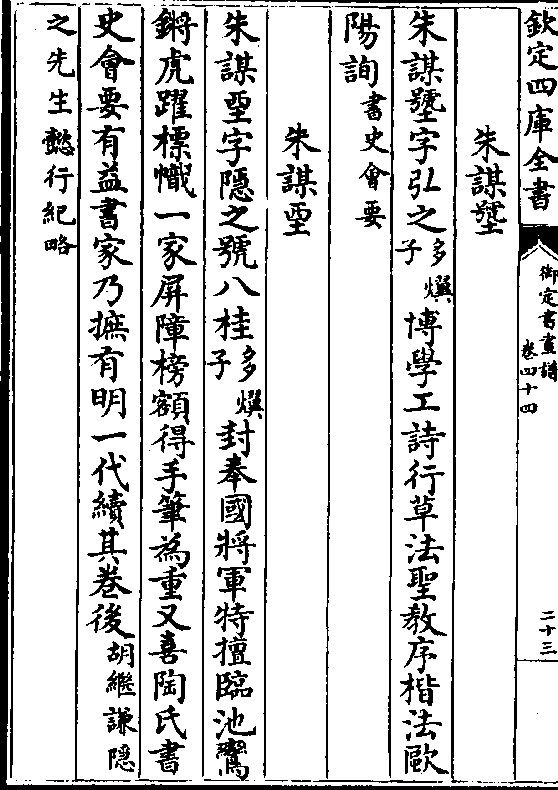 欽定四庫全書 御定書畫譜 卷四十四 二十三
朱謀
朱謀字弘之多子博學工詩行草法聖教序楷法歐
陽詢書史會要
朱謀垔
朱謀垔字隱之號八桂多子封奉國將軍特擅臨池鸞
鏘虎躍標幟一家屏障榜額得手筆為重又喜陶氏書
史會要有益書家乃摭有明一代續其卷後胡繼謙隱
之先生懿行紀略